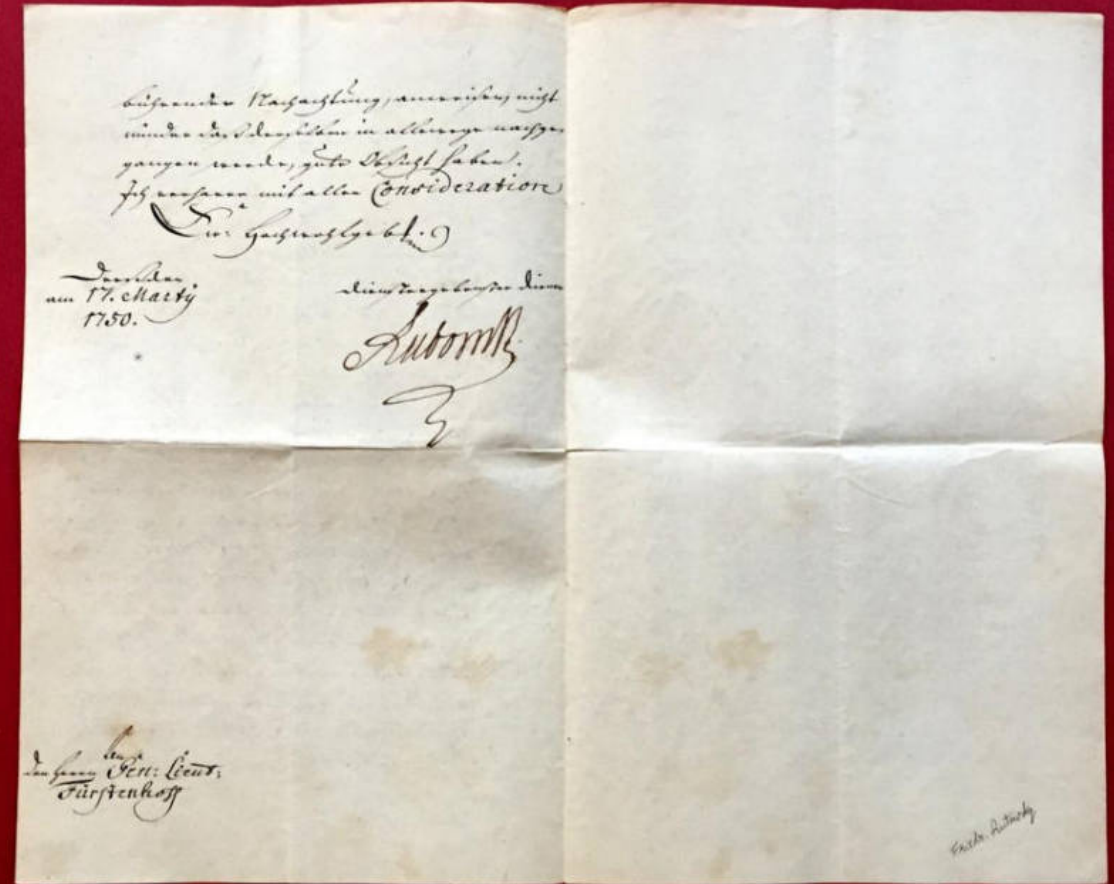 bührender Nachachtung, anweisen, nicht
minder daß derselben in allewege nachge-
gangen werde, gute Obsicht haben.
Ich verharre mit aller Consideration
Ew: Hochwohlgeb.
Dresden
am 17. Martij
1750.
dienstergebenster Diener
Rutowsky
An
den Herrn Gen: Lieut:
Fürstenhoff
Friedr. Rutowsky